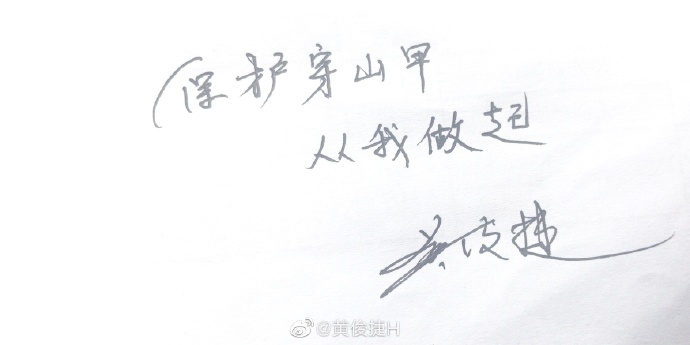 保护穿山甲
从我做起
黄俊捷
@黄俊捷H